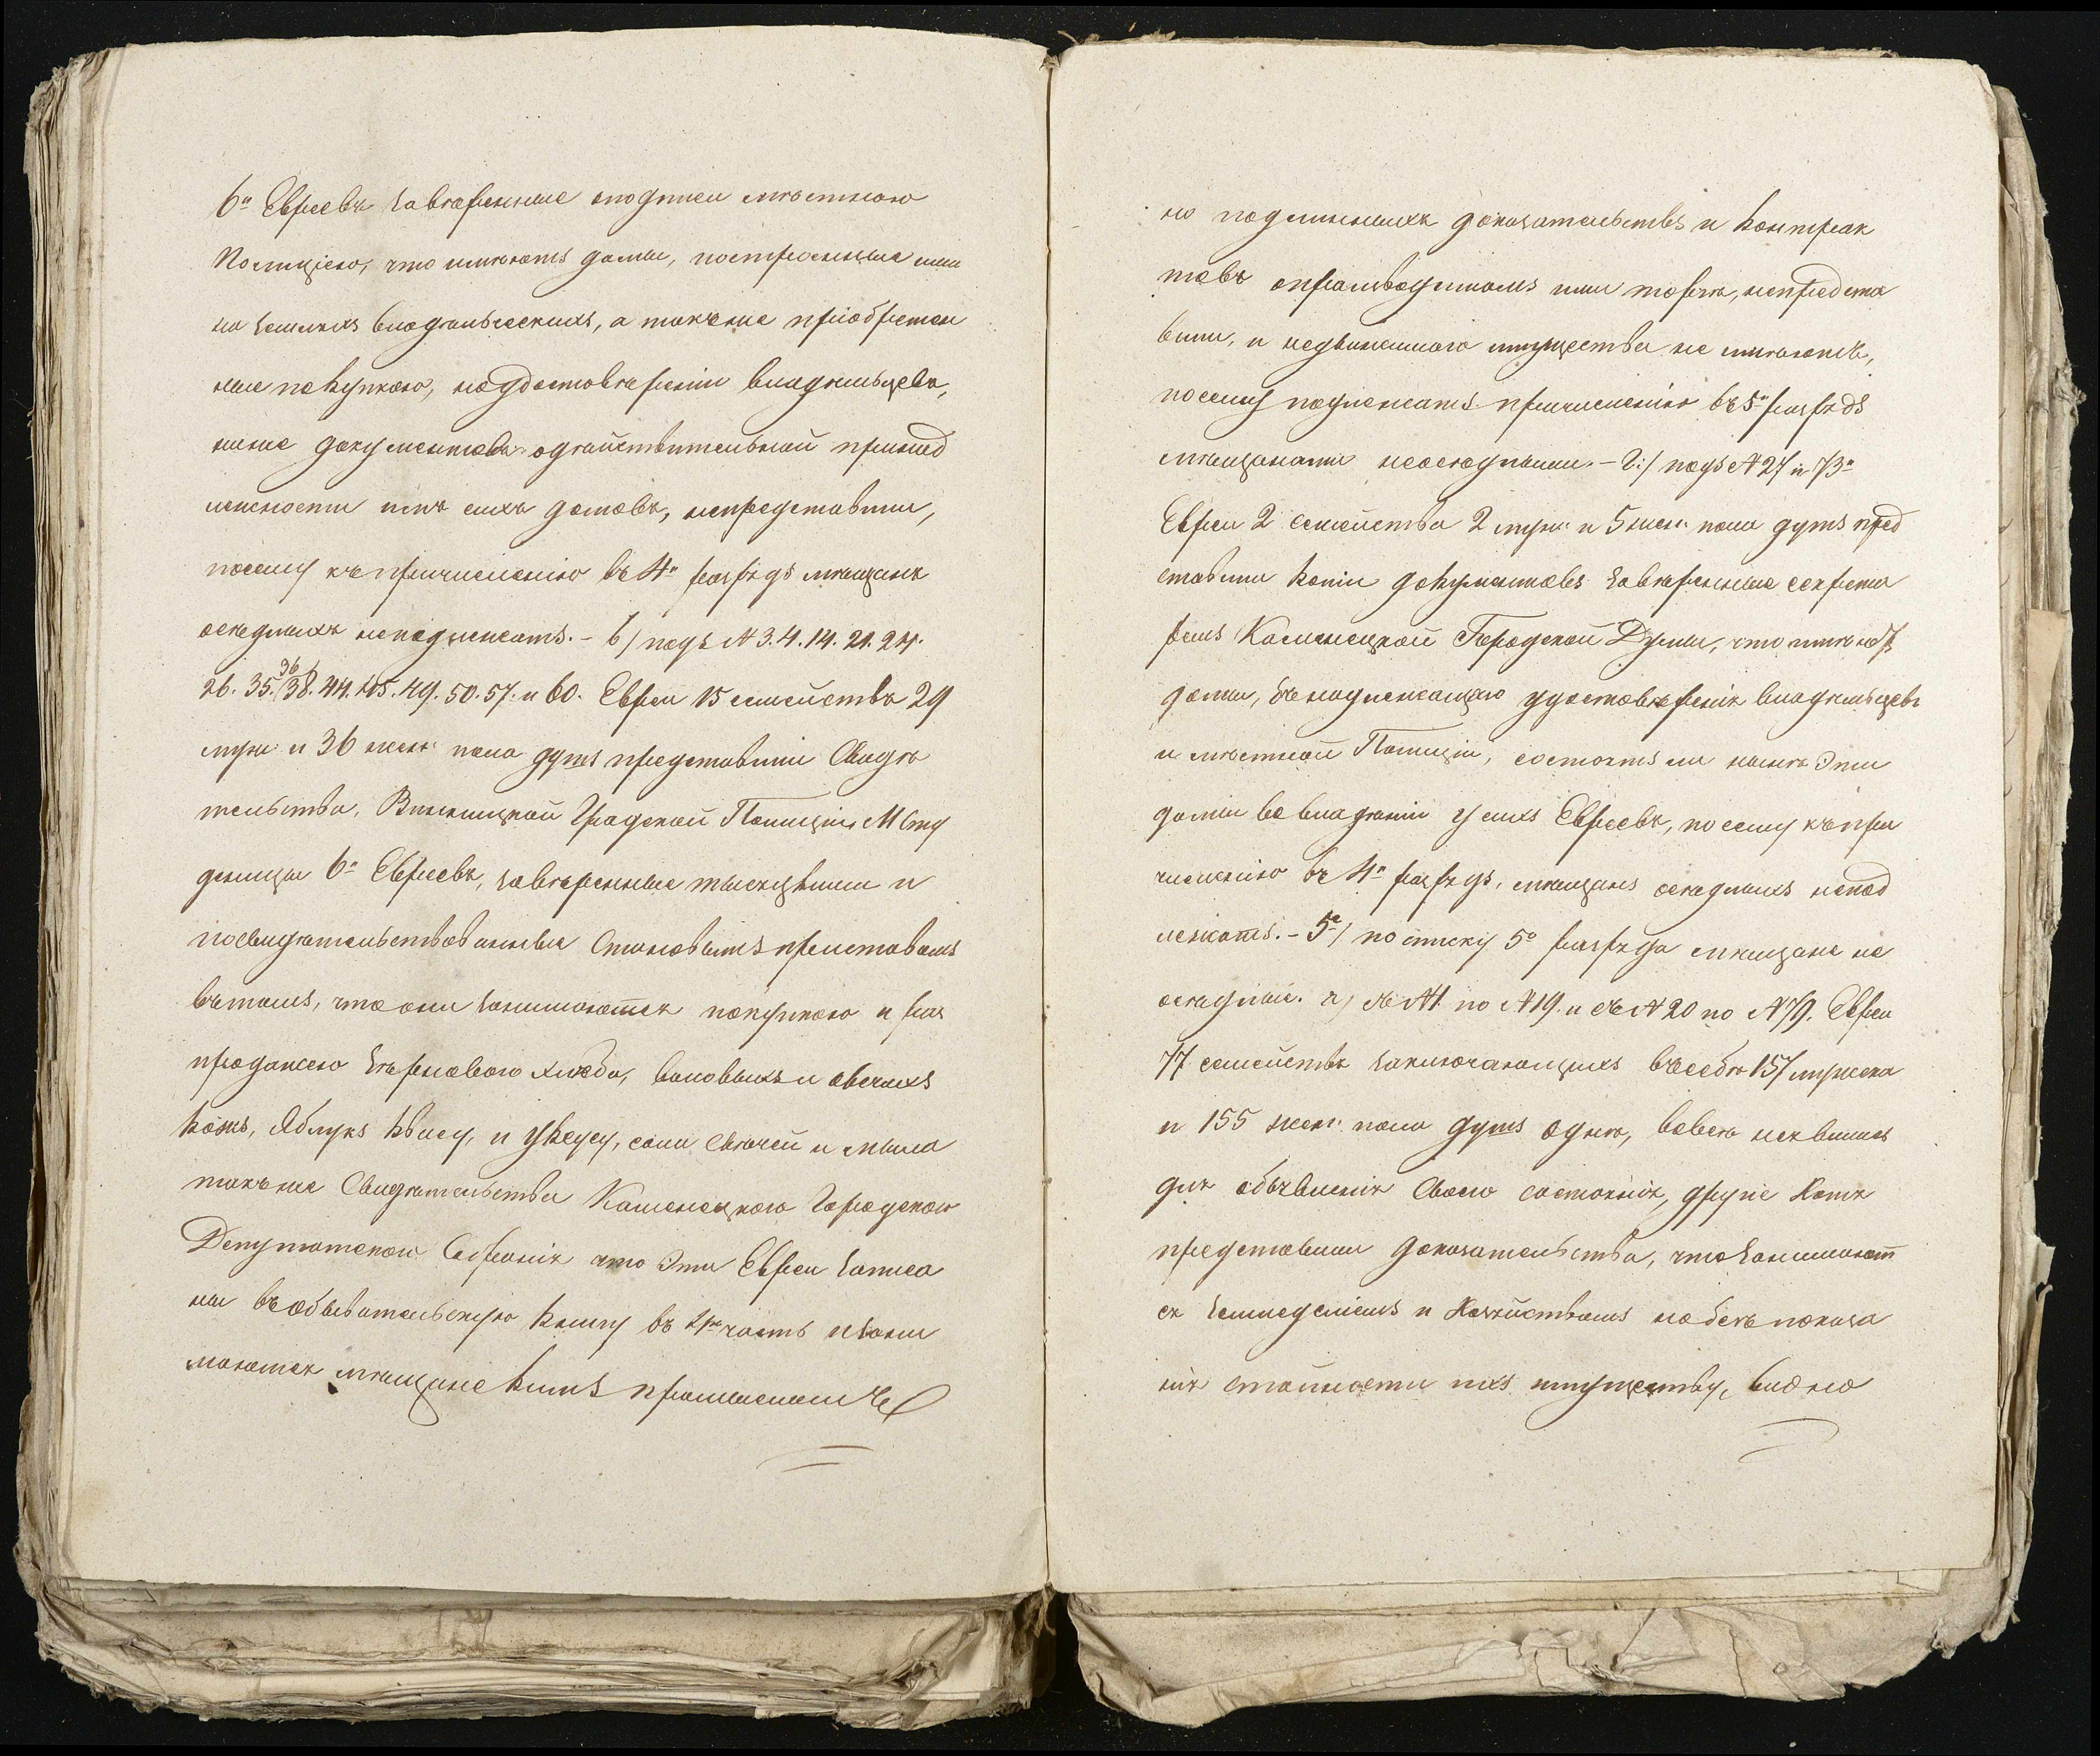 6ᵗ Евреевъ заверенные оподписи местною
Полициею, что имеютъ домы, построенные ими
на земляхъ владельческихъ, а также приобретен
ные покупкою, но удостоверении владельцевъ,
ниже документовъ о действительной принад
лежности имъ сихъ домовъ, непредставили,
посему къ причислению въ 4й разрядъ мещанъ
оседлыхъ неподлежатъ. – б/ подъ № 3. 4. 14. 21. 24.
26. 35. 36/38. 44. 45. 49. 50. 57. и 60. Евреи 15 семействъ 29
муж: и 36 жен: пола душъ представили Свиде
тельства, Винницкой Градской Полиции, М Сту
деницы 6 Евреевъ, заверенные тысяцкими и
посвидетельствованные Становымъ приставомъ
въ томъ, что они занимаются покупкою и рас
продажею зернового хлеба, воловыхъ и овечихъ
кожъ, Яблукъ квасу, и уксусу, соли свечей и мыла
также Свидетельства Каменецкого Городского
Депутатского Собрания что Эти Евреи записа
ны въ обывательскую книгу въ 4ю часть и зани
маются мещанскимъ промысломъ
но подлинныхъ доказательствъ и контрак
товъ о производимомъ ими торге, непредста
вили, и недвижимого имущества не имеютъ,
посему подлежатъ причислению въ 5й разрядъ
мещанами неоседлыми. – г:/ подъ № 27 и 73й
Евреи 2 семейства 2 муж: и 5 жен: пола душъ пред
ставили копии документовъ заверенные секрета
ремъ Каменецкой Городской Думы, что имеютъ
домы, безъ надлежащаго удостоверения владельцевъ
и местной Полиции, состоятъ ли ныне Эти
домы во владении у сихъ Евреевъ, посему къ при
числению въ 4й разрядъ, мещанъ оседлыхъ непод
лежатъ. – 5е/ по списку 5го разряда мещане не
оседлые. а/ съ №1. по №19. и съ № 20 по №79. Евреи
77 семействъ заключающихъ въ себе 157 мужска
и 155 жен: пола душъ одне, вовсе неявились
для объявления Своего состояния, другие Хотя
представили доказательства, что занимают
ся земледелиемъ и Хозяйствомъ но безъ показа
ния стоимости ихъ имуществу, видно